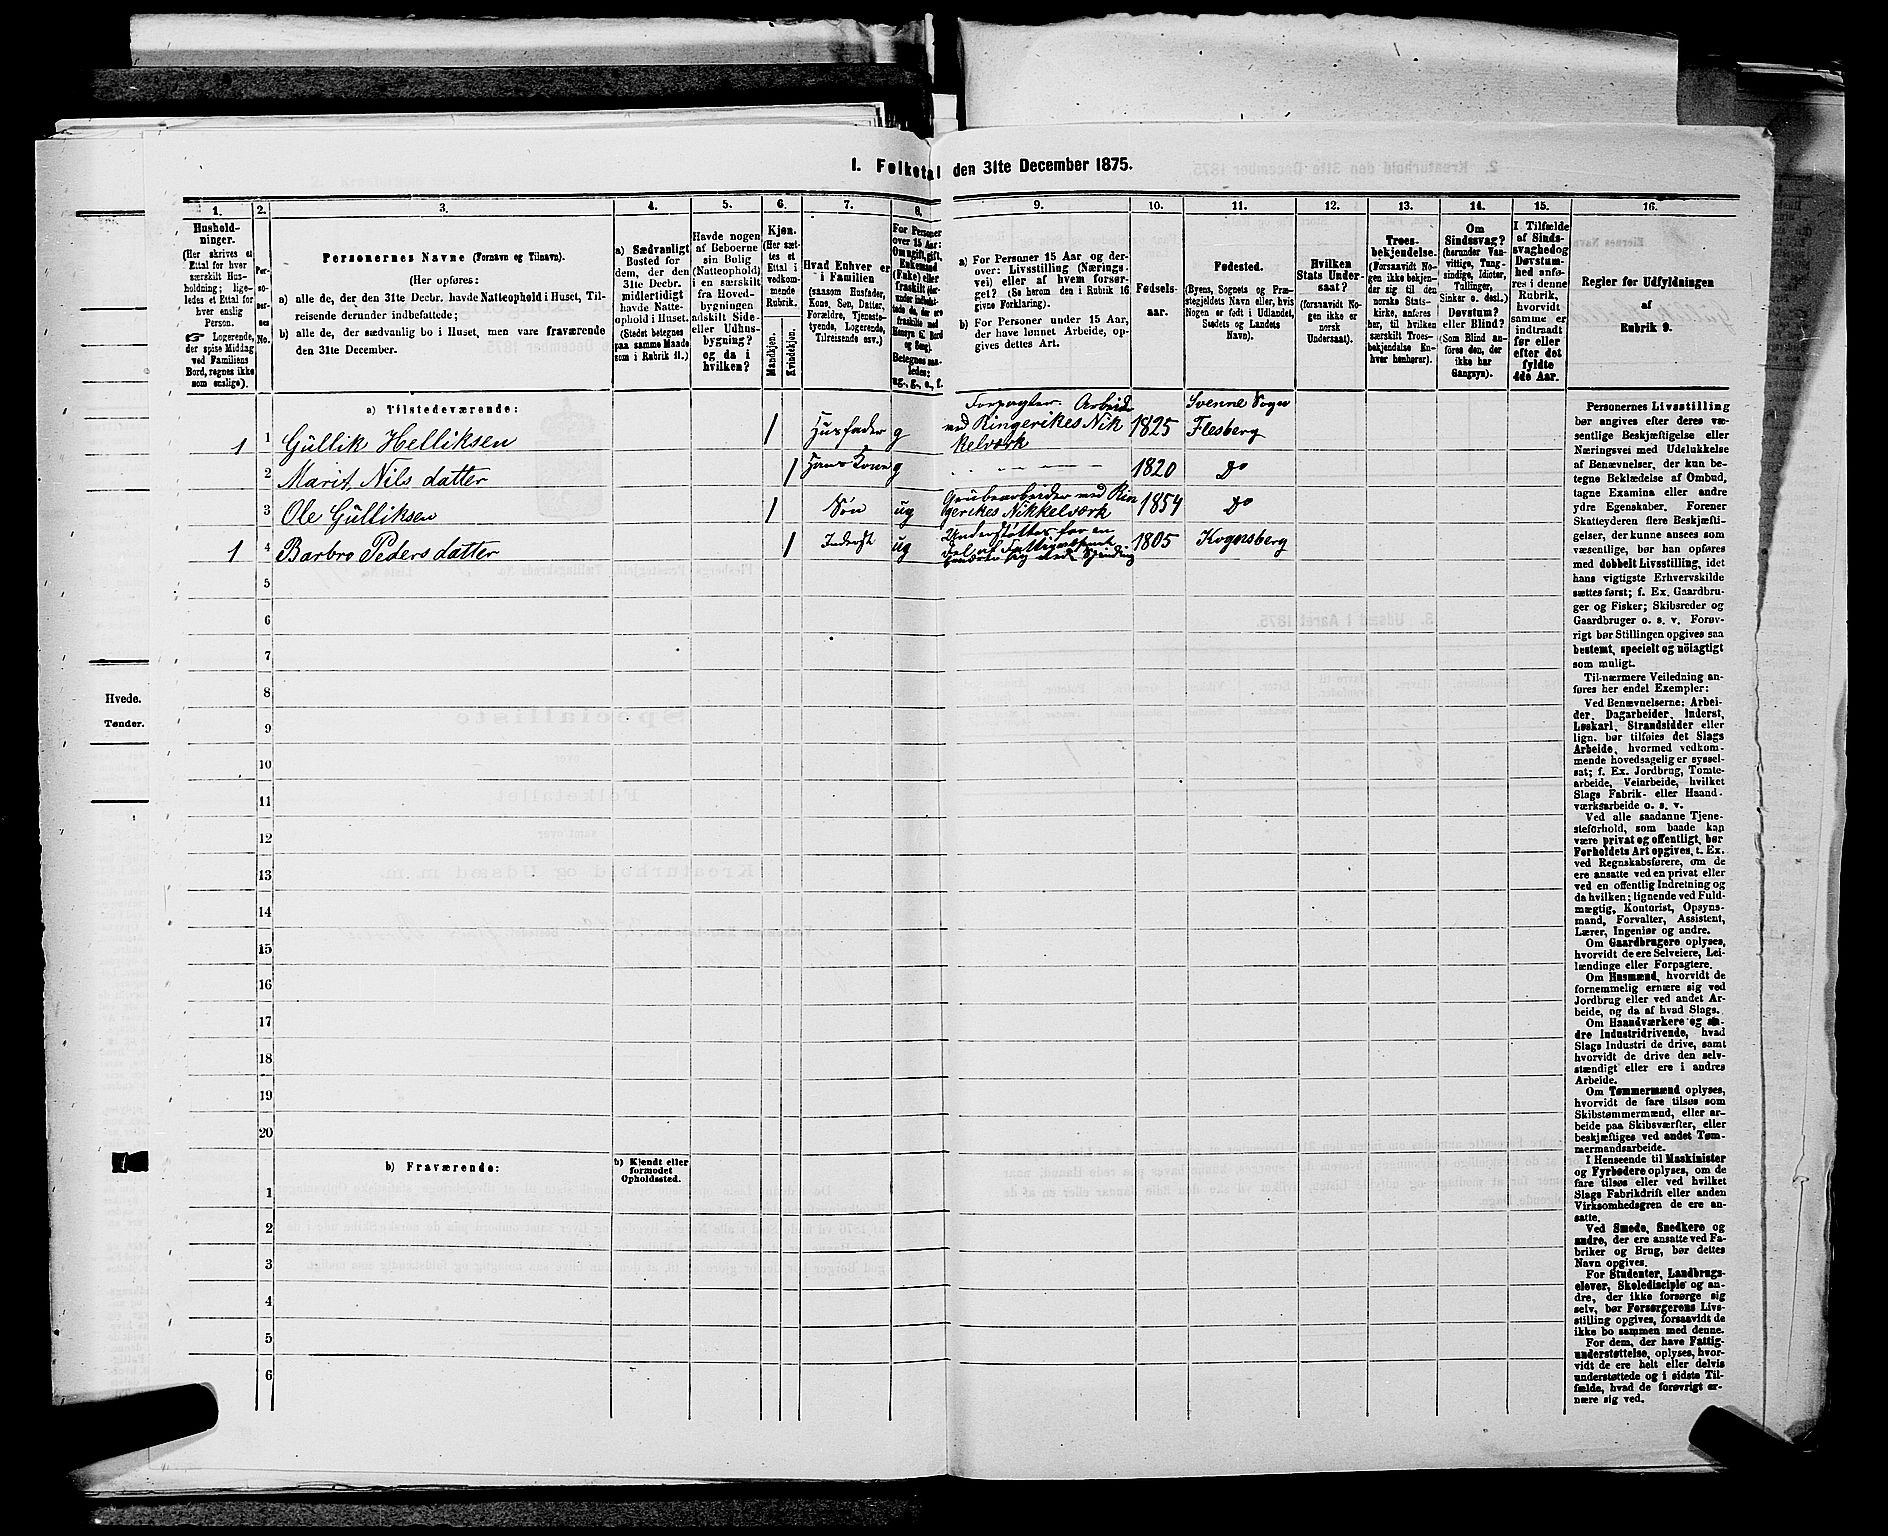 1. Folketal den 31te December 1875.
1. 2. 3. 4. 5. 6. 7. 8. 9. 10. 11. 12. 13. 14. 15. 16.
Hushold-
ninger.
(Her skrives et
Ettal for hver
særskilt Hus-
holdning; lige-
ledes et Ettal for
hver enslig
Person.
☞ Logerende,
der spise Middag
ved Familiens
Bord, regnes ikke
som enslige).
Per-
so-
ner-
nes
No.
Personernes Navne (Fornavn og Tilnavn).
(Her opføres:
a) alle de, der den 31te Decbr. havde Natteophold i Huset, Til-
reisende derunder indbefattede;
b) alle de, der sædvanlig bo i Huset, men vare fraværende
den 31te December.
a) Sædvanligt
Bosted for
dem, der den
31te Decbr.
midlertidigt
havde Natte-
ophold i Huset.
(Stedet betegnes
paa samme Maade
som i Rubrik 11.)
Havde nogen
af Beboerne
sin Bolig
(Natteophold)
i en særskilt
fra Hoved-
bygningen
adskilt Side-
eller Udhus-
bygning?
og da i
hvilken?
Kjøn.
(Her sæt-
tes et
Ettal i
vedkom-
mende
Rubrik.
Mandkjøn.
Kvindekjøn.
Hvad Enhver er
i Familien
(saasom Husfader,
Kone, Søn, Datter,
Forældre, Tjeneste-
tyende, Logerende,
Tilreisende osv.)
For Personer
over 15 Aar:
Om ugift, gift,
Enkemand
(Enke) eller
fraskilt
Betegnes saa-
ledes:
ug., g., e., f.
a) For Personer 15 Aar og der-
over: Livsstilling (Nærings-
vei) eller af hvem forsør-
get? (Se herom den i Rubrik 16
givne Forklaring).
b) For Personer under 15 Aar,
der have lønnet Arbeide, op-
gives dettes Art.
Fødsels-
aar.
Fødested.
(Byens, Sognets og Præ-
stegjeldets Navn eller, hvis
Nogen er født i Udlandet,
Stedets og Landets
Navn).
Hvilken
Stats Under-
saat?
(forsaavidt No-
gen ikke er
norsk
Undersaat).
Troes-
bekjendelse.
(Forsaavidt No-
gen ikke bekjen-
der sig til den
norske Stats-
kirke, anføres
her, til hvilken
særskilt Troes-
bekjendelse En-
hver henhører).
Om
Sindssvag?
(herunder Van-
vittige, Tung-
sindige, Idioter,
Tullinger,
Sinker o. desl.)
Døvstum?
eller Blind?
(Som Blind an-
føres den, der
ikke har
Gangsyn).
I Tilfælde
af Sinds-
svaghed og
Døvstum-
hed anfø-
res i denne
Rubrik,
hvorvidt
samme er
indtraadt
før eller
efter det
fyldte
4de Aar.
Regler for Udfyldningen
af
Rubrik 9.
a) Tilstedeværende:
1 1 Gullik Helliksen 1 Husfader g Forpagter. Arbeider ved Ringerikes Nikkelværk 1825 Svenne Sogn Flesberg
2 Marit Nils datter 1 Hans Kone g 1820 Do
3 Ole Gulliksen 1 Søn ug Grubearbeider ved Ringerikes Nikkelværk 1854 Do
1 4 Barbro Peders datter 1 Inderst ug Understøttes for en Del af 1805 Kognsberg
5
6
7
8
9
10
11
12
13
14
15
16
17
18
19
20
b) Fraværende:
b) Kjendt eller
formodet
Opholdssted.
1
2
3
4
5
6
Personernes Livsstilling
bør angives efter deres væ-
sentlige Beskjæftigelse eller
Næringsvei med Udelukkelse
af Benævnelser, der kun be-
tegne Beklædelse af Ombud,
tagne Examina eller andre
ydre Egenskaber. Forener
Skatteyderen flere Beskjæfti-
gelser, der kunne ansees som
væsentlige, bør han opføres
med dobbelt Livsstilling, idet
hans vigtigste Erhvervskilde
sættes først; f. Ex. Gaardbru-
ger og Fisker; Skibsreder og
Gaardbruger o. s. v. Forøv-
rigt bør Stillingen opgives saa
bestemt, specielt og nöiagtigt
som muligt.
Til nærmere Veiledning an-
føres her endel Exempler:
Ved Benævnelserne: Arbei-
der, Dagarbeider, Inderst,
Løskarl, Strandsidder eller
lign. bør tilføies det Slags
Arbeide, hvormed vedkom-
mende hovedsagelig er syssel-
sat; f. Ex. Jordbrug, Tomte-
arbeide, Veiarbeide, hvilket
Slags Fabrik- eller Haand-
værksarbeide o. s. v.
Ved alle saadanne Tjene-
steforhold, som baade kan
være privat og offentligt, bør
Forholdets Art opgives, t. Ex.
ved Regnskabsførere, om de
ere ansatte ved en privat eller
ved en offentlig Indretning og
da hvilken; lignende ved Fuld-
mægtig, Kontorist, Opsyns-
mand, Forvalter, Assistent,
Lærer, Ingeniør og andre.
Om Gaardbrugere oplyses,
hvorvidt de ere Selveiere, Lei-
lændinge eller Forpagtere.
Om Husmænd, hvorvidt de
fornemmelig ernære sig ved
Jordbrug eller ved andet Ar-
beide, og da af hvad Slags.
Om Haandværkere og an-
dre Industridrivende, hvad
Slags Industri de drive, samt
hvorvidt de drive den selv-
stændigt eller ere i andres
Arbeide.
Om Tømmermænd oplyses,
hvorvidt de fare tilsøs som
Skibstømmermænd, eller ar-
beide paa Skibsværfter, eller
beskjæftiges ved andet Tøm-
mermandsarbeide.
I Henseende til Maskinister
og Fyrbødere oplyses, om de
fare tilsøs eller ved hvilket
Slags Fabrikdrift eller anden
Virksomhedsgren de ere an-
satte.
Ved Smede, Snedkere og
andre, der ere ansatte ved Fa-
briker og Brug, bør dettes
Navn opgives.
For Studenter, Landbrugs-
elever, Skoledisciple og an-
dre, der ikke forsørge sig
selv, bør Forsørgerens Livs-
stilling opgives, forsaavidt de
ikke bo sammen med denne.
For dem, der have Fattig-
understøttelse, oplyses, hvor-
vidt de ere helt eller delvis
understøttede og i sidste Til-
fælde, hvad de forøvrigt er-
nære sig ved.
Hvede.
Tønder.